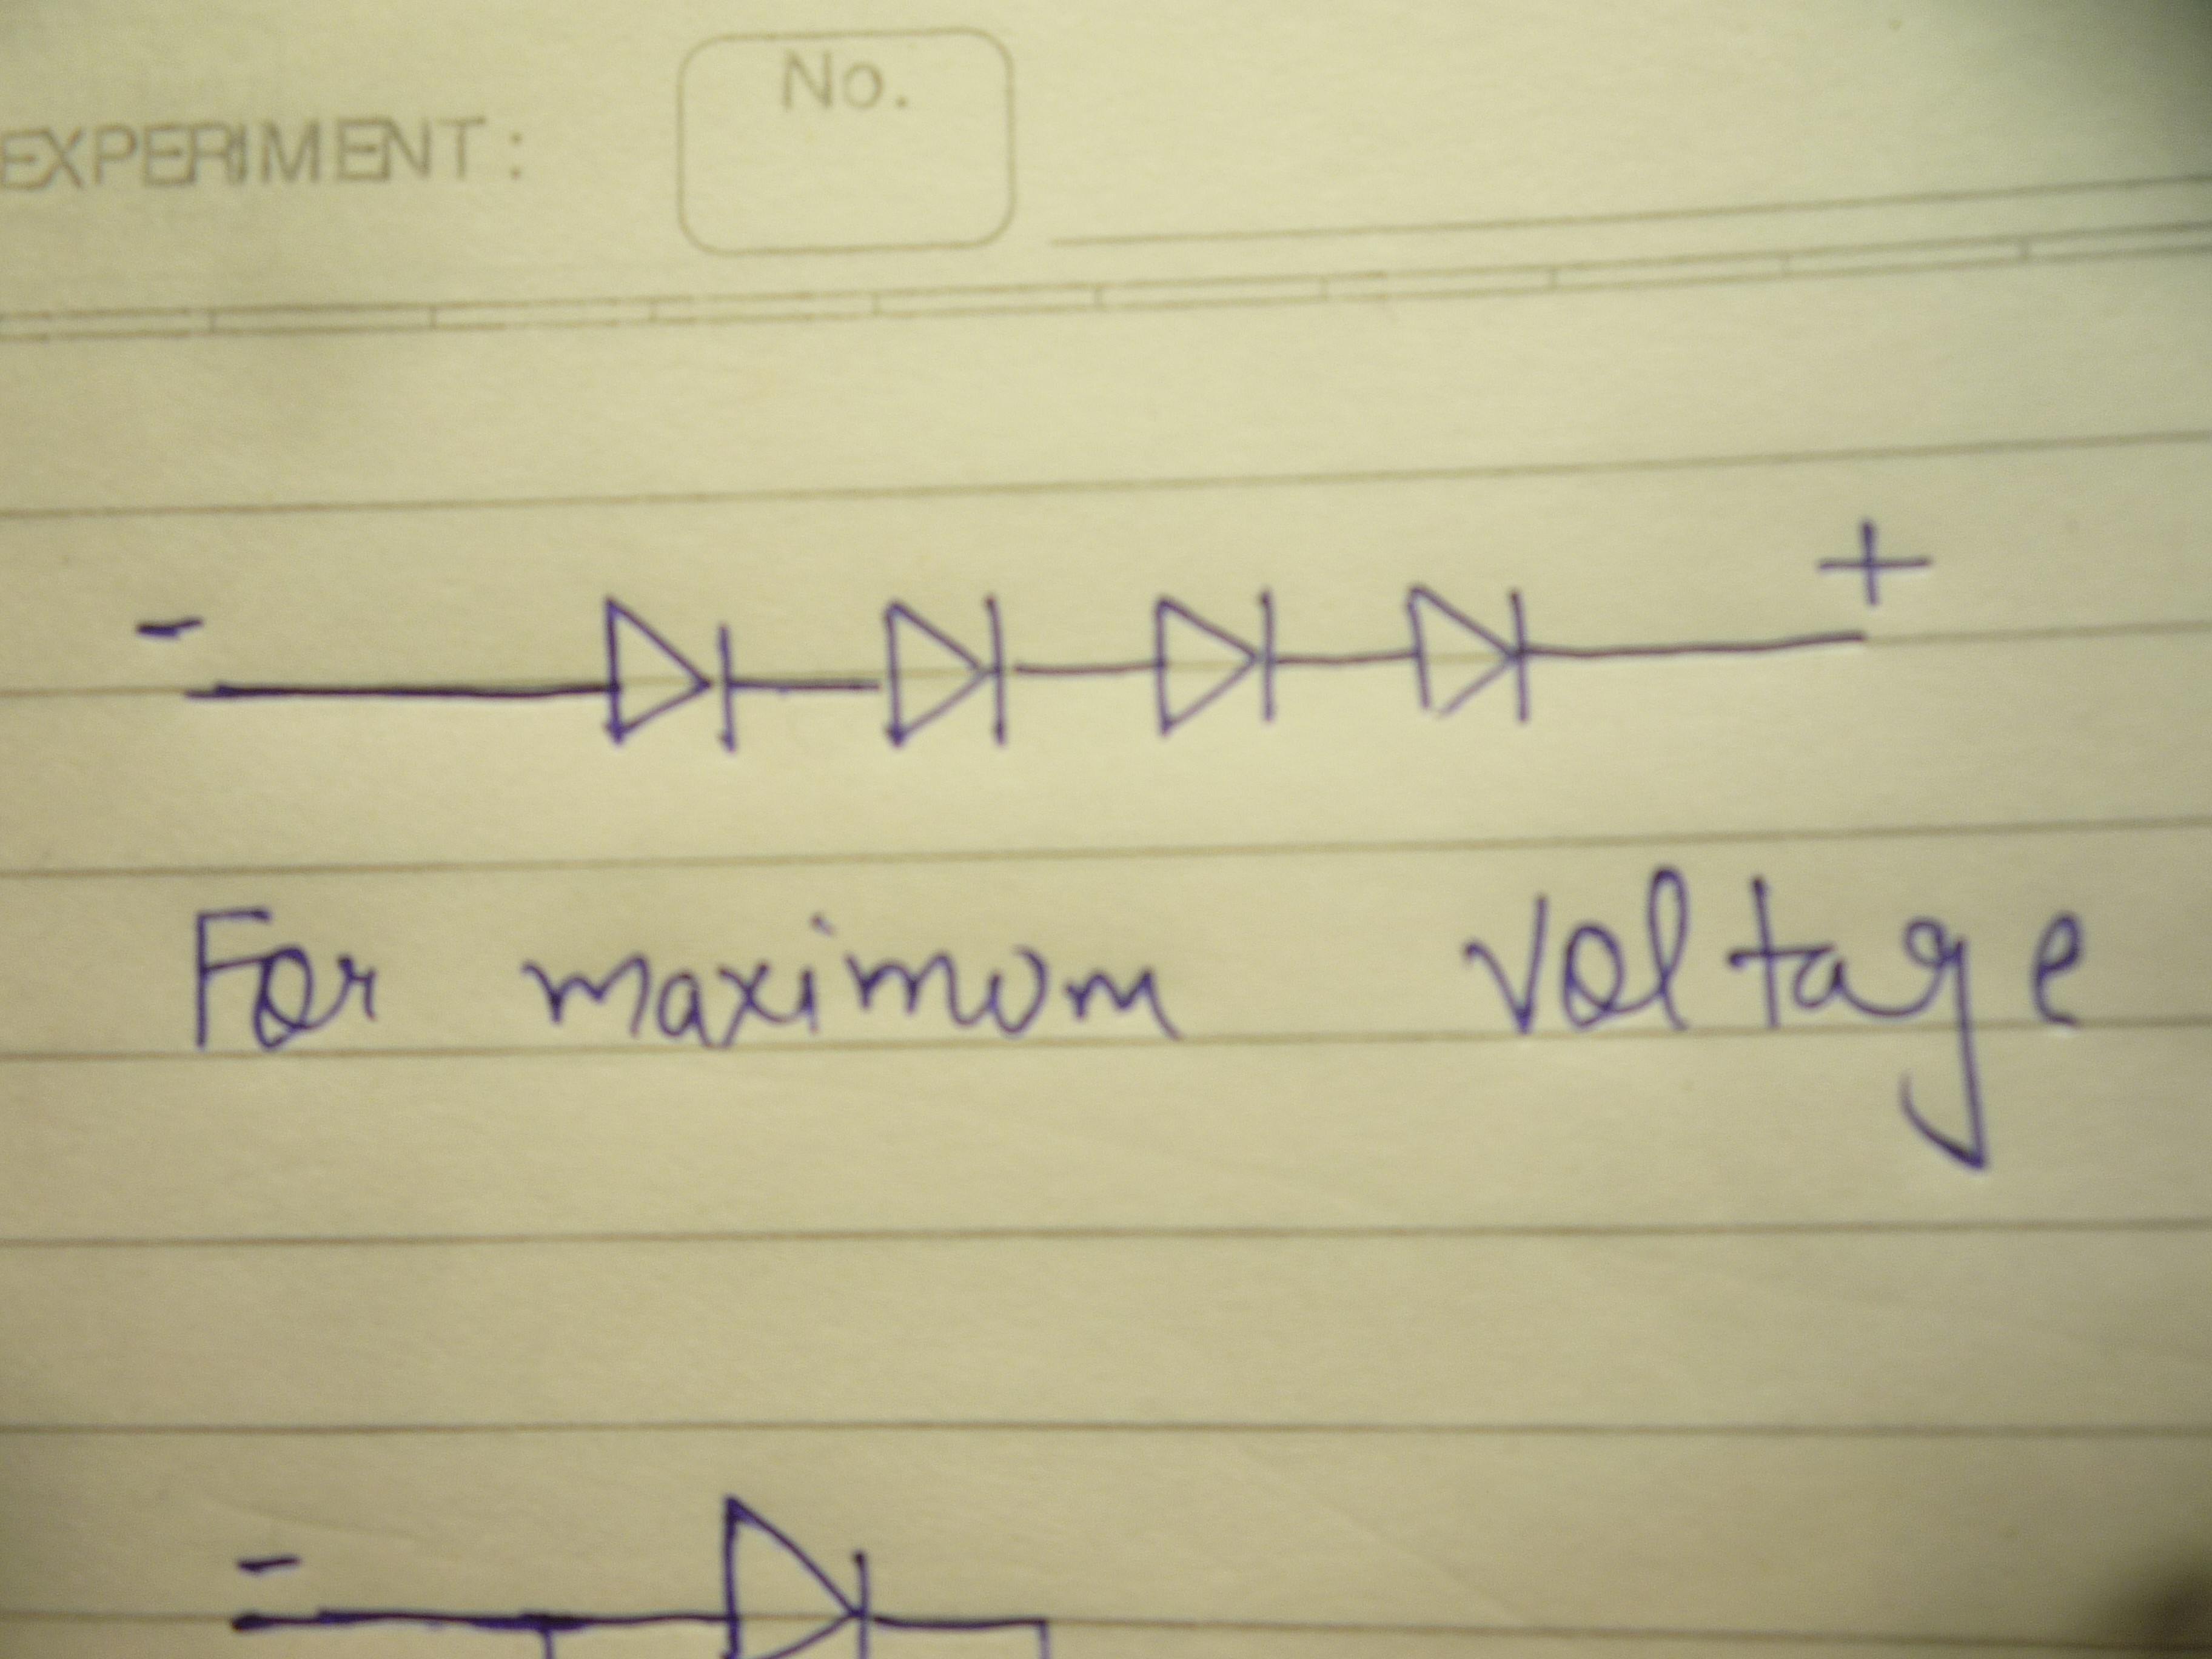 No.
EXPERIMENT:
- +
For maximum voltage
-